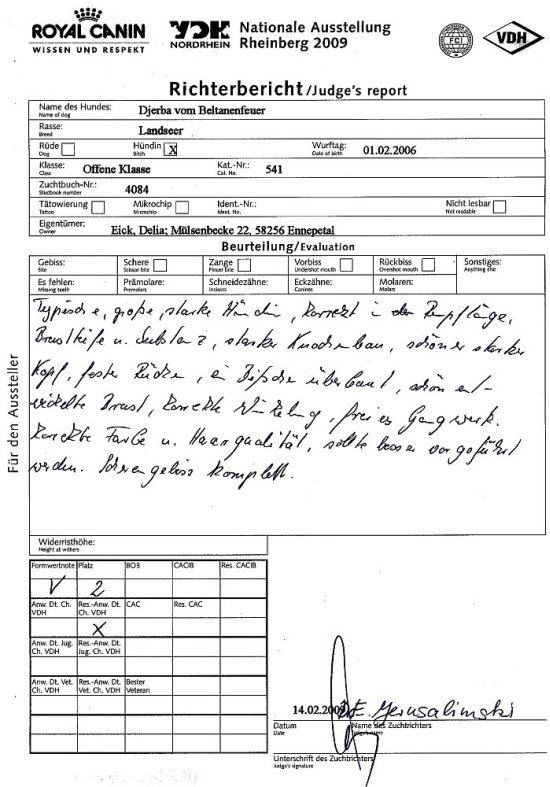 ROYAL CANIN
WISSEN UND RESPEKT
VDH
NORDRHEIN
Nationale Ausstellung
Rheinberg 2009
FCI
VDH
Richterbericht/Judge's report
Name des Hundes: Djerba vom Beltanenfeuer
Name of dog
Rasse: Landseer
Breed
Rüde Hündin X Wurftag: 01.02.2006
Dog Bitch Date of birth
Klasse: Offene Klasse Kat.-Nr.: 541
Class Cat. No.
Zuchtbuch-Nr.: 4084
Studbook number
Tätowierung Mikrochip Ident.-Nr.: Nicht lesbar
Tattoo Microchip Ident. No. Not readable
Eigentümer: Eick, Delia; Mülsenbecke 22, 58256 Ennepetal
Owner
Beurteilung/Evaluation
Gebiss: Schere Zange Vorbiss Rückbiss Sonstiges:
Bite Scissor bite Pincer bite Undershot mouth Overshot mouth Anything else
Es fehlen: Prämolare: Schneidezähne: Eckzähne: Molaren:
Missing teeth Premolars Incisors Canines Molars
Typische, große, starke Hündin, korrekt in der Rumpflänge,
Brusttiefe u. Substanz, starker Knochenbau, schöner starker
Kopf, fester Rücken, ein Bißchen überbaut, schön ent-
wickelte Brust, korrekte Winkelung, freies Gangwerk.
Korrekte Farbe u. Haarqualität, sollte besser vorgeführt
werden. Scherengebiss komplett.
Für den Aussteller
Widerristhöhe:
Height at withers
Formwertnote Platz BOB CACIB Res. CACIB
V 2
Anw. Dt. Ch. VDH Res.-Anw. Dt. Ch. VDH CAC Res. CAC
X
Anw. Dt. Jug. Ch. VDH Res.-Anw. Dt. Jug. Ch. VDH
Anw. Dt. Vet. Ch. VDH Res.-Anw. Dt. Vet. Ch. VDH Bester Veteran
14.02.2009 E. Jerusalimski
Datum Name des Zuchtrichters
Date Judge's name
Unterschrift des Zuchtrichters
Judge's signature